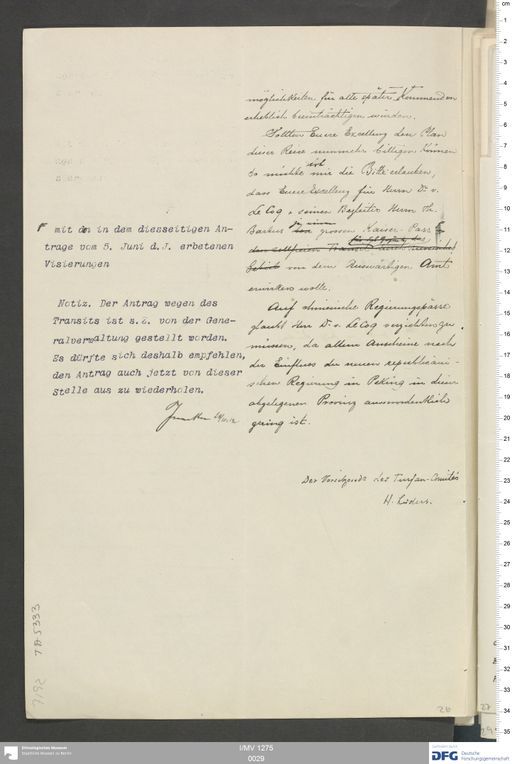 möglichkeiten für alle später Kommenden
erheblich beeinträchtigen würden.
Sollten Euere Excellenz den Plan
dieser Reise nunmehr billigen können
so möchte ich mir die Bitte erlauben,
dass Euere Excellenz für Herrn Dr. v.
Le Coq u. seinen Begleiter Herrn Th.
Bartus je einen grossen Kaiser-Pass
von dem Auswärtigen Amt
erwirken wolle.
Auf chinesische Regierungspässe
glaubt Herr Dr. v. Le Coq verzichten zu
müssen, da allem Anscheine nach
der Einfluss der neuen republicani-
schen Regierung in Peking in dieser
abgelegenen Provinz ausserordentlich
gering ist.
Der Vorsitzende des Turfan-Comités
H. Lüders.
mit den in dem diesseitigen An-
trage vom 5. Juni d.J. erbetenen
Visierungen
Notiz. Der Antrag wegen des
Transits ist s.Z. von der Gene-
ralverwaltung gestellt worden.
Es dürfte sich deshalb empfehlen,
den Antrag auch jetzt von dieser
Stelle aus zu wiederholen.
26
27
Ethnologisches Museum
Staatliche Museen zu Berlin
I/MV 1275
0029
DFG Deutsche
Forschungsgemeinschaft